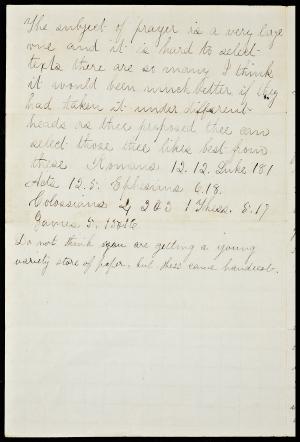 The subject of prayer is a very large
one and it is hard to select
texts there are so many I think
it would been much better if they
had taken it under different
heads as thee proposed thee can
select those thee likes best from
these Romans 12.12. Luke 18 1
Acts 12.5. Ephesians 6.18.
Colossians 4, 2 & 3 1 Thess. 5.17
James 5. 15 & 16
Do not think you are getting a young
variety store of paper, but these came handiest.